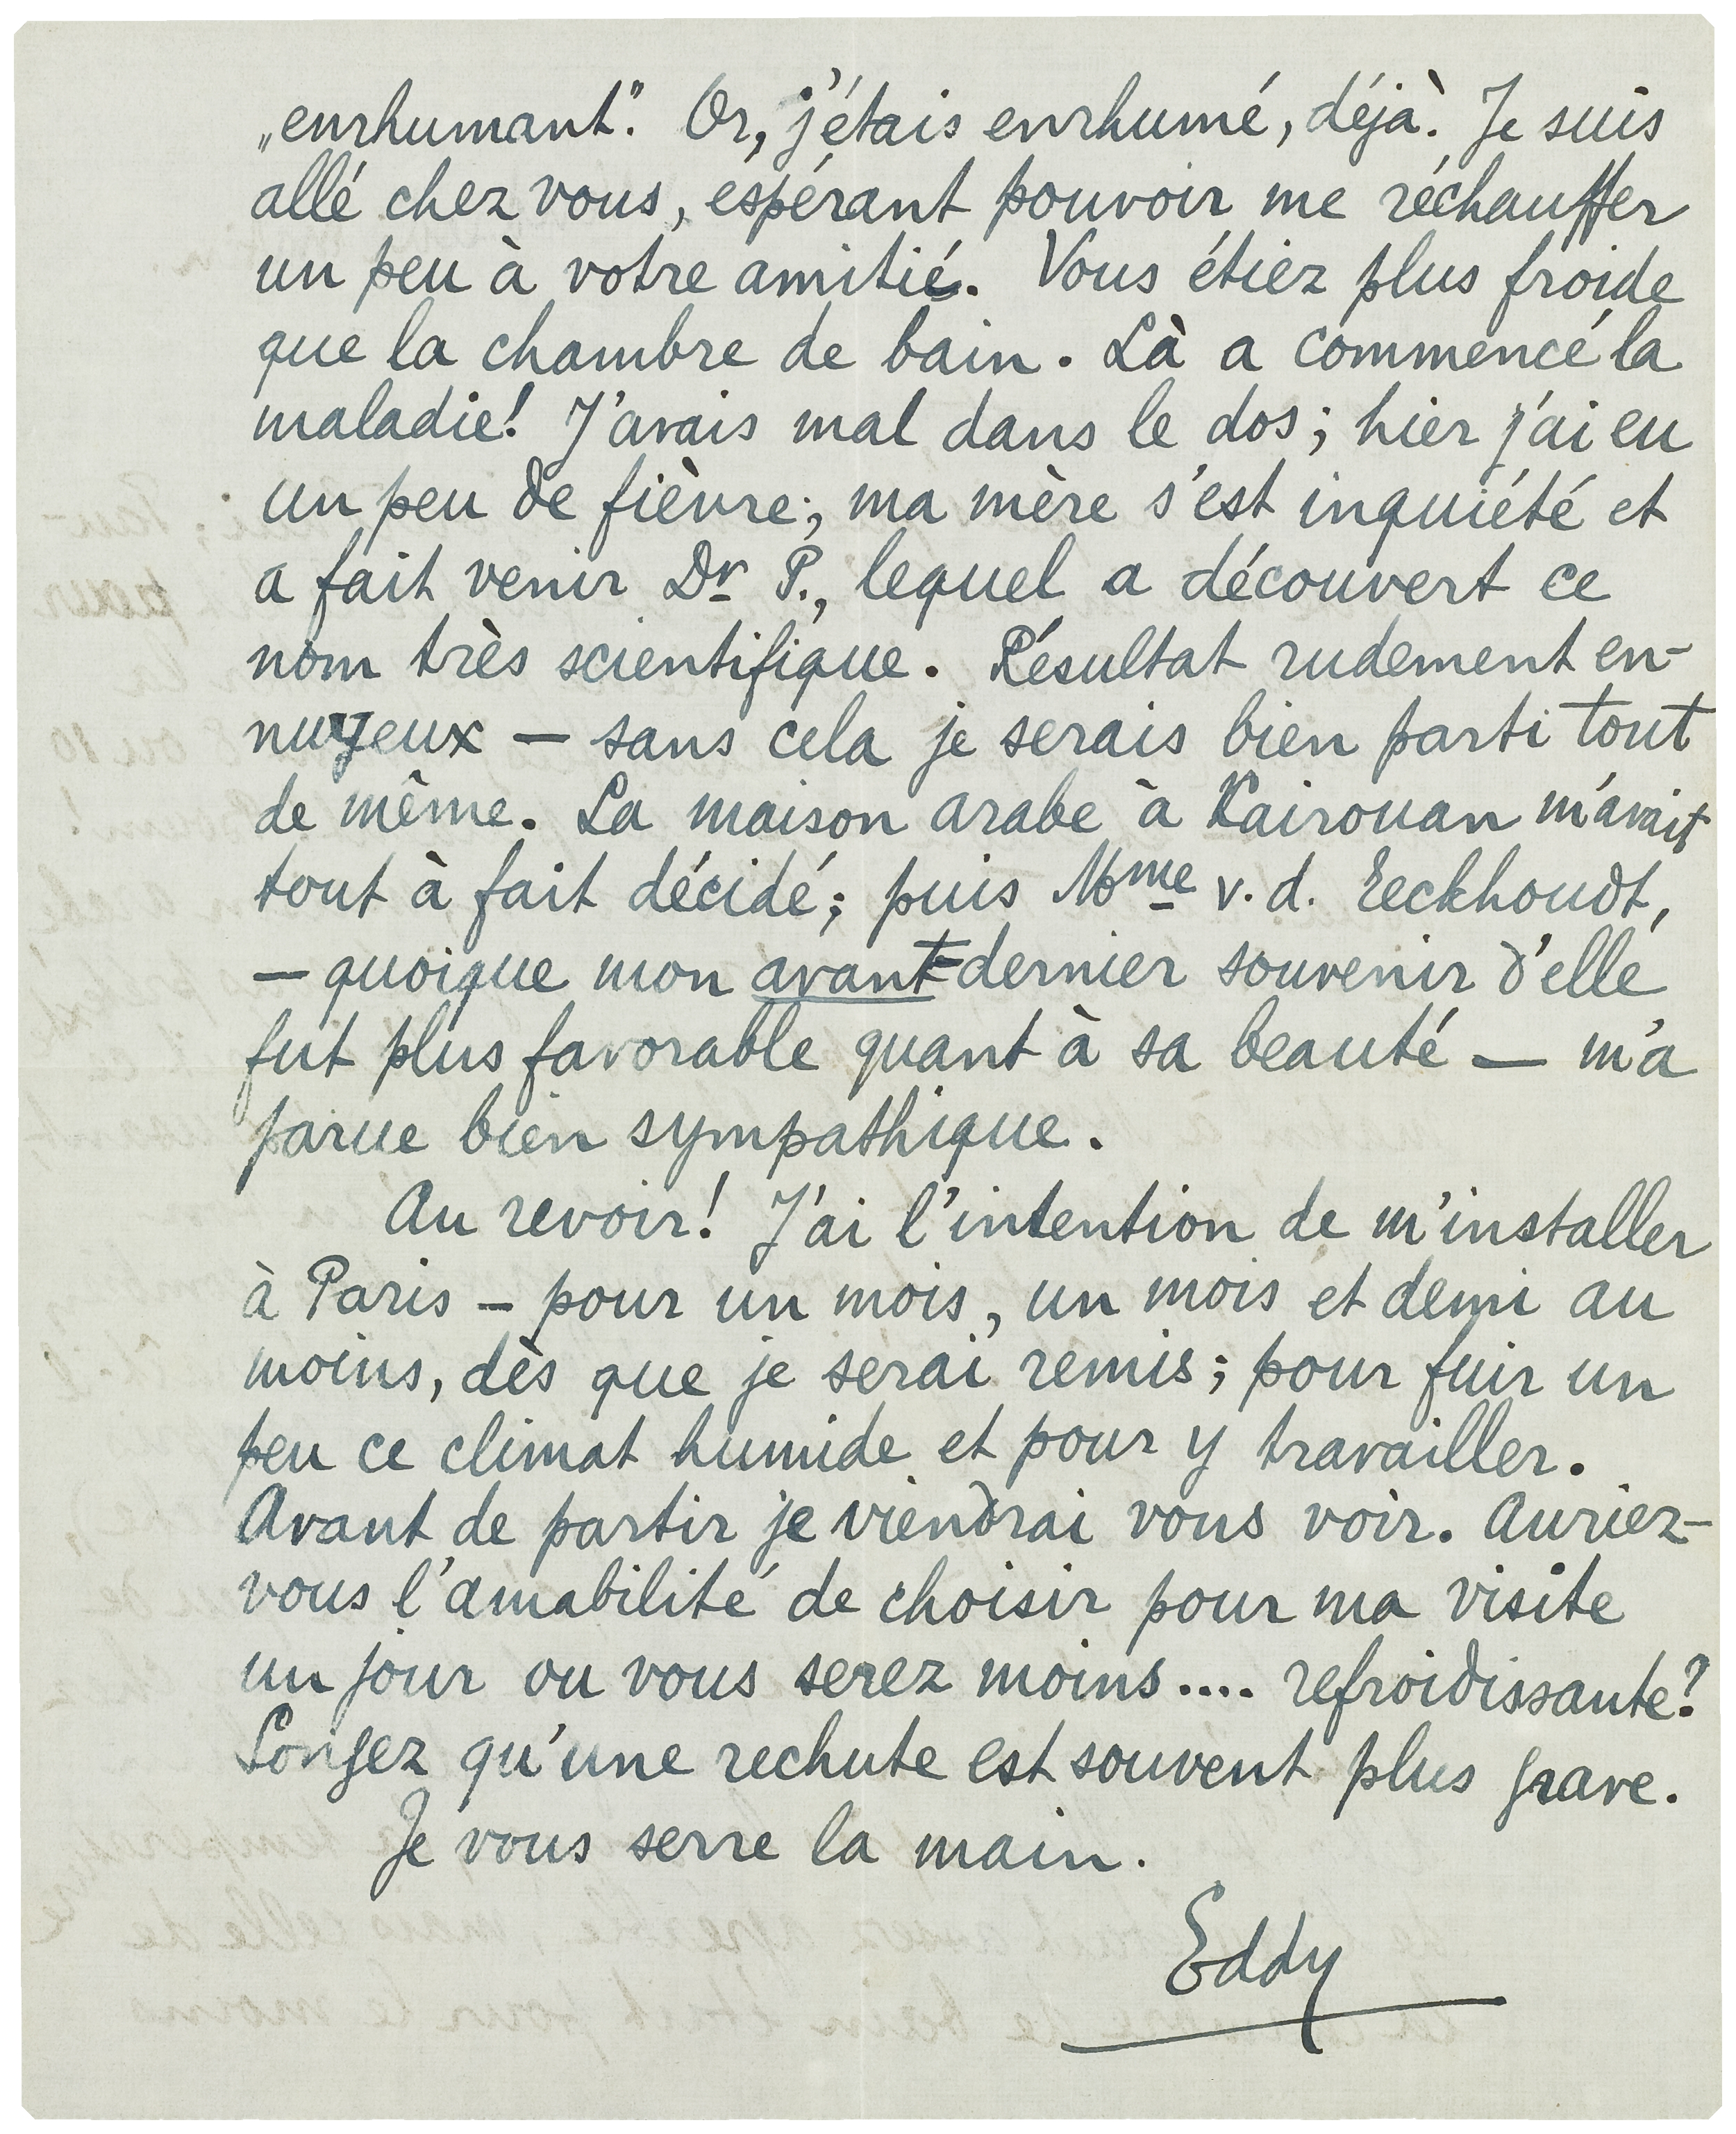 „enrhumant”. Or, j'étais enrhumé, déjà. Je suis
allé chez vous, espérant pouvoir me réchauffer
un peu à votre amitié. Vous étiez plus froide
que la chambre de bain. Là a commencé la
maladie! J'avais mal dans le dos; hier j'ai eu
un peu de fièvre; ma mère s'est inquiété et
a fait venir Dr P., lequel a découvert ce
nom très scientifique. Résultat rudement en-
nuyeux — sans cela je serais bien parti tout
de même. La maison arabe à Kairouan m'avait
tout à fait décidé; puis Mme v. d. Eeckhoudt,
— quoique mon avant-dernier souvenir d'elle
fut plus favorable quant à sa beauté — m'a
parue bien sympathique.
Au revoir! J'ai l'intention de m'installer
à Paris — pour un mois, un mois et demi au
moins, dès que je serai remis; pour fuir un
peu ce climat humide et pour y travailler.
Avant de partir je viendrai vous voir. Auriez-
vous l'amabilité de choisir pour ma visite
un jour ou vous serez moins.... refroidissante?
Songez qu'une rechute est souvent plus grave.
Je vous serre la main.
Eddy